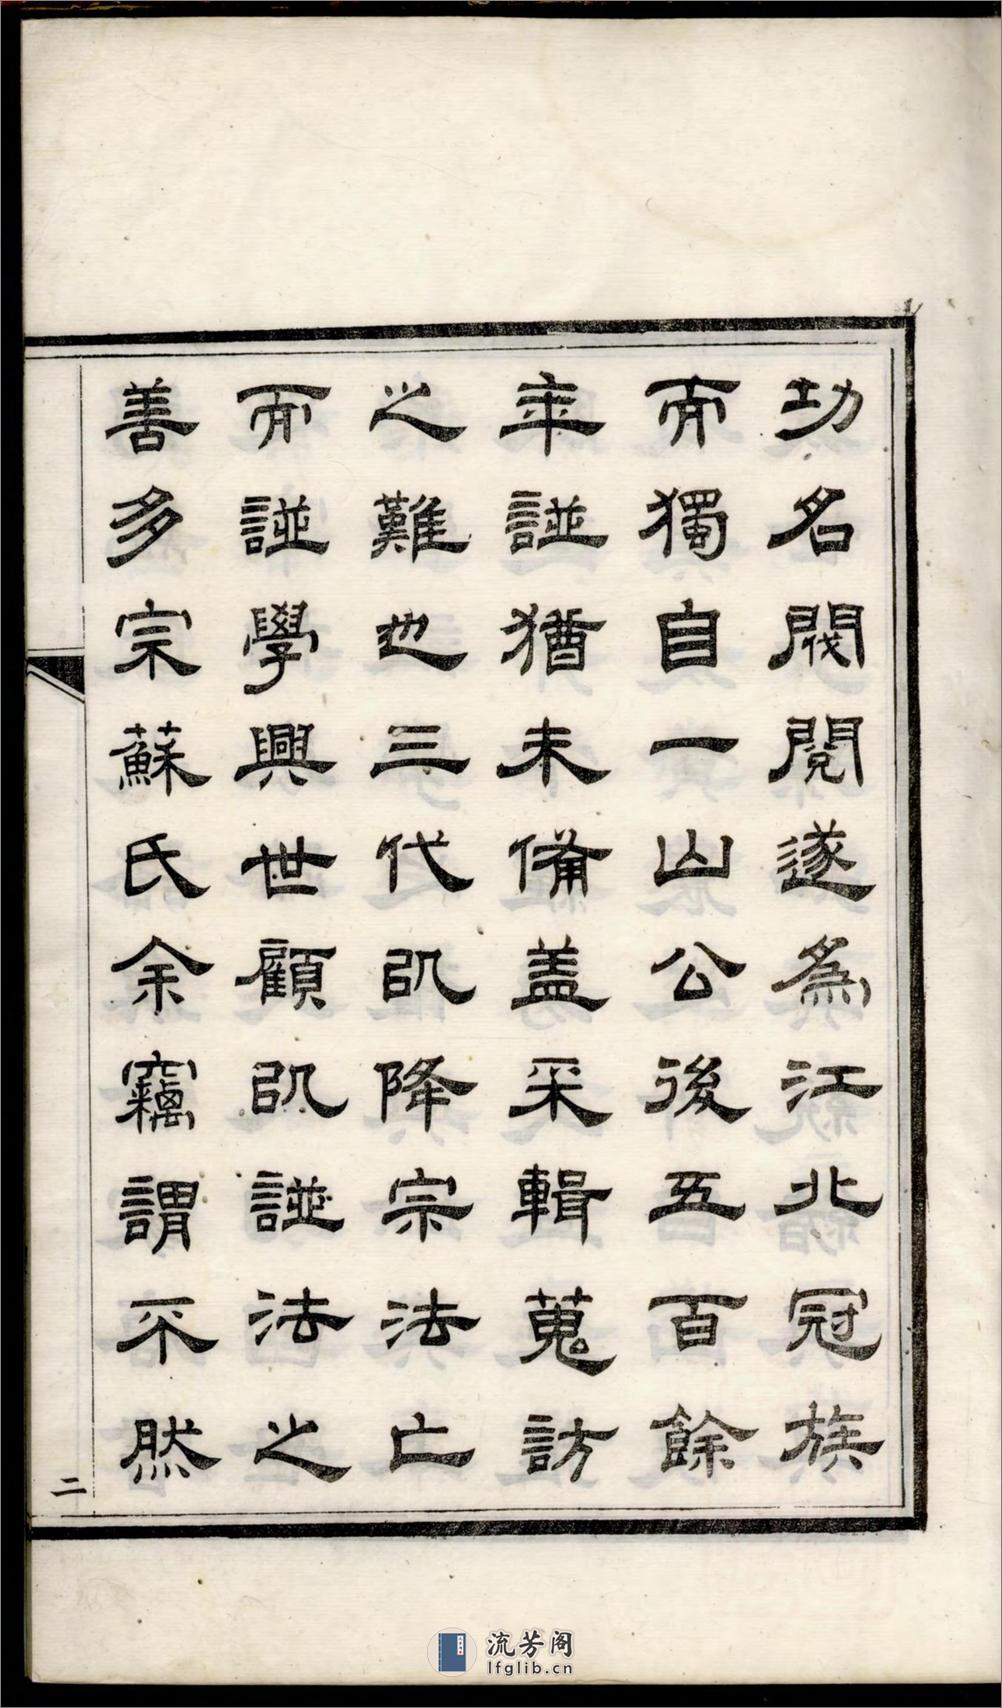 功名閥閱遂為江北冠族
而獨自一山公後五百餘
年譜猶未備蓋采輯蒐訪
之難也三代以降宗法亡
而譜學興世顧以譜法之
善多宗蘇氏余竊謂不然
二
流芳阁
lfglib.cn